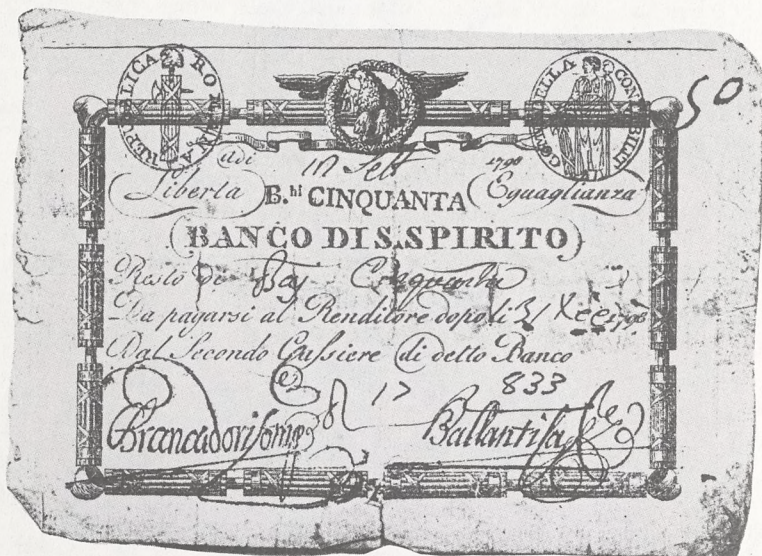 REPUBLICA ROMANA
DELLA
50
Adi Sett 1798
Liberta B.hi CINQUANTA Eguaglianza
BANCO DI S. SPIRITO
Resto di Baj Cinquanta
Da pagarsi al Renditore dopo li 31 Xbre 1798
Dal Secondo Cassiere di detto Banco
17 833
Brancadori Ballanti